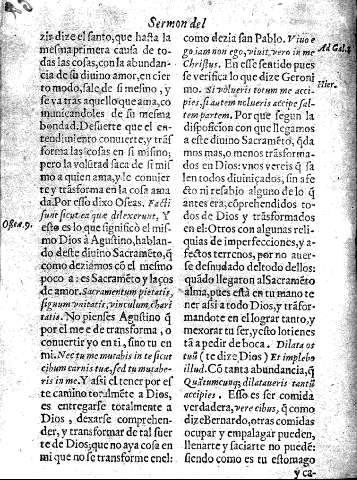 Sermon del
zis dize el santo, que hasta la
mesma primera causa de to-
das las cosas, con la abundan-
cia de su diuino amor, en cier
to modo, sale de si mesmo, y
se va tras aquello que ama, co
municandoles de su mesma
bondad. Desuerte que el en-
tendimiento conuierte, y trãs
forma las cosas en si mismo;
pero la volũtad saca de si mis
mo a quien ama, y le conuier
te y trãsforma en la cosa ama
da. Por esso dixo Oseas. Facti
sunt sicut ea quæ dilexerunt. Y
esto es lo que significò el mis
mo Dios à Agustino, hablan-
do deste diuino Sacramẽto, q̃
como deziamos cõ el mesmo
poco a: es Sacramẽto y laços
de amor. Sacramentum pietatis,
signum vnitatis, vinculum, chari
tatis. No pienses Agustino q̃
por el me è de transforma, o
conuertir yo en ti, sino tu en
mi. Nec tu me mutabis in te sicut
cibum carnis tuæ, sed tu mutabe-
ris in me. Y assi el tener por es
te camino totalmẽte a Dios,
es entregarse totalmente a
Dios, dexarse comprehen-
der, y transformar de tal suer
te de Dios; que no aya cosa en
mi que no se transforme enel:
Osea. 9.
como dezia san Pablo. Viuo e
go iam non ego, viuit vero in me
Christus. En esse sentido pues
se verifica lo que dize Geroni
mo. Si volueris totum me acci-
pies, si autem volueris accipe sal-
tem partem. Porque segun la
disposicion con que llegamos
a este diuino Sacramẽto, q̃da
mos mas, o menos trãsforma-
dos en Dios: vnos vereis q̃ sa
len todos diuinizados, sin afe
cto ni resabio alguno de lo q̃
antes era; cõprehendidos to-
dos de Dios y trãsformados
en el: Otros con algunas reli-
quias de imperfecciones, y a-
fectos terrenos, por no auer-
se desnudado del todo dellos:
quãdo llegaron al Sacramẽto
alma, pues està en tu mano te
ner assi a todo Dios, y trãsfor-
mandote en el lograr tanto, y
mexorar tu ser, y esto lo tienes
tã a pedir de boca. Dilata os
tuũ (te dize Dios) Et implebo
illud. Cõ tanta abundancia, q̃
Quãtumcunq; dilataueris tantũ
accipies. Esso es ser comida
verdadera, vere cibus, q̃ como
dize Bernardo, otras comidas
ocupar y empalagar pueden,
llenarte y saciarte no puede:
siendo como es tu estomago
y ca-
Ad Gal. 2
Hier.